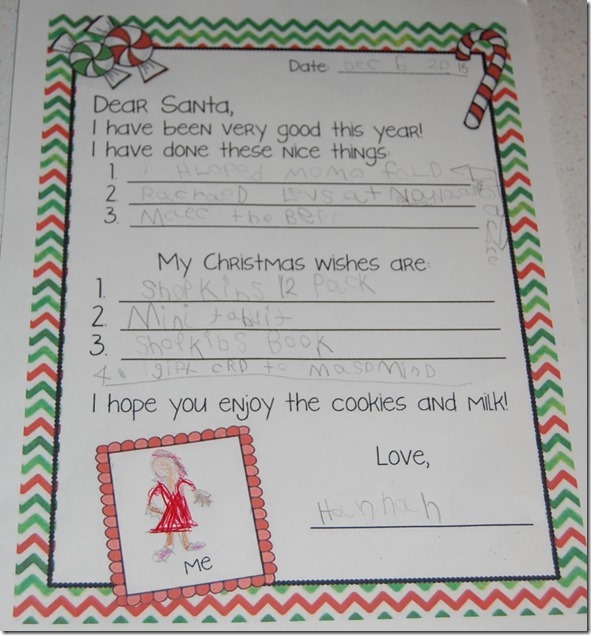 Date: Dec 6 2015
Dear Santa,
I have been very good this year!
I have done these nice things:
1. I Hloped moma fold
2. Rachaed Levs at
3. Maec the Bed
My Christmas wishes are:
1. Shopkins 12 Pack
2. Mini tablit
3. Shopkibs Book
4. 1 gift crd to
I hope you enjoy the cookies and milk!
Love,
Hannah
Me